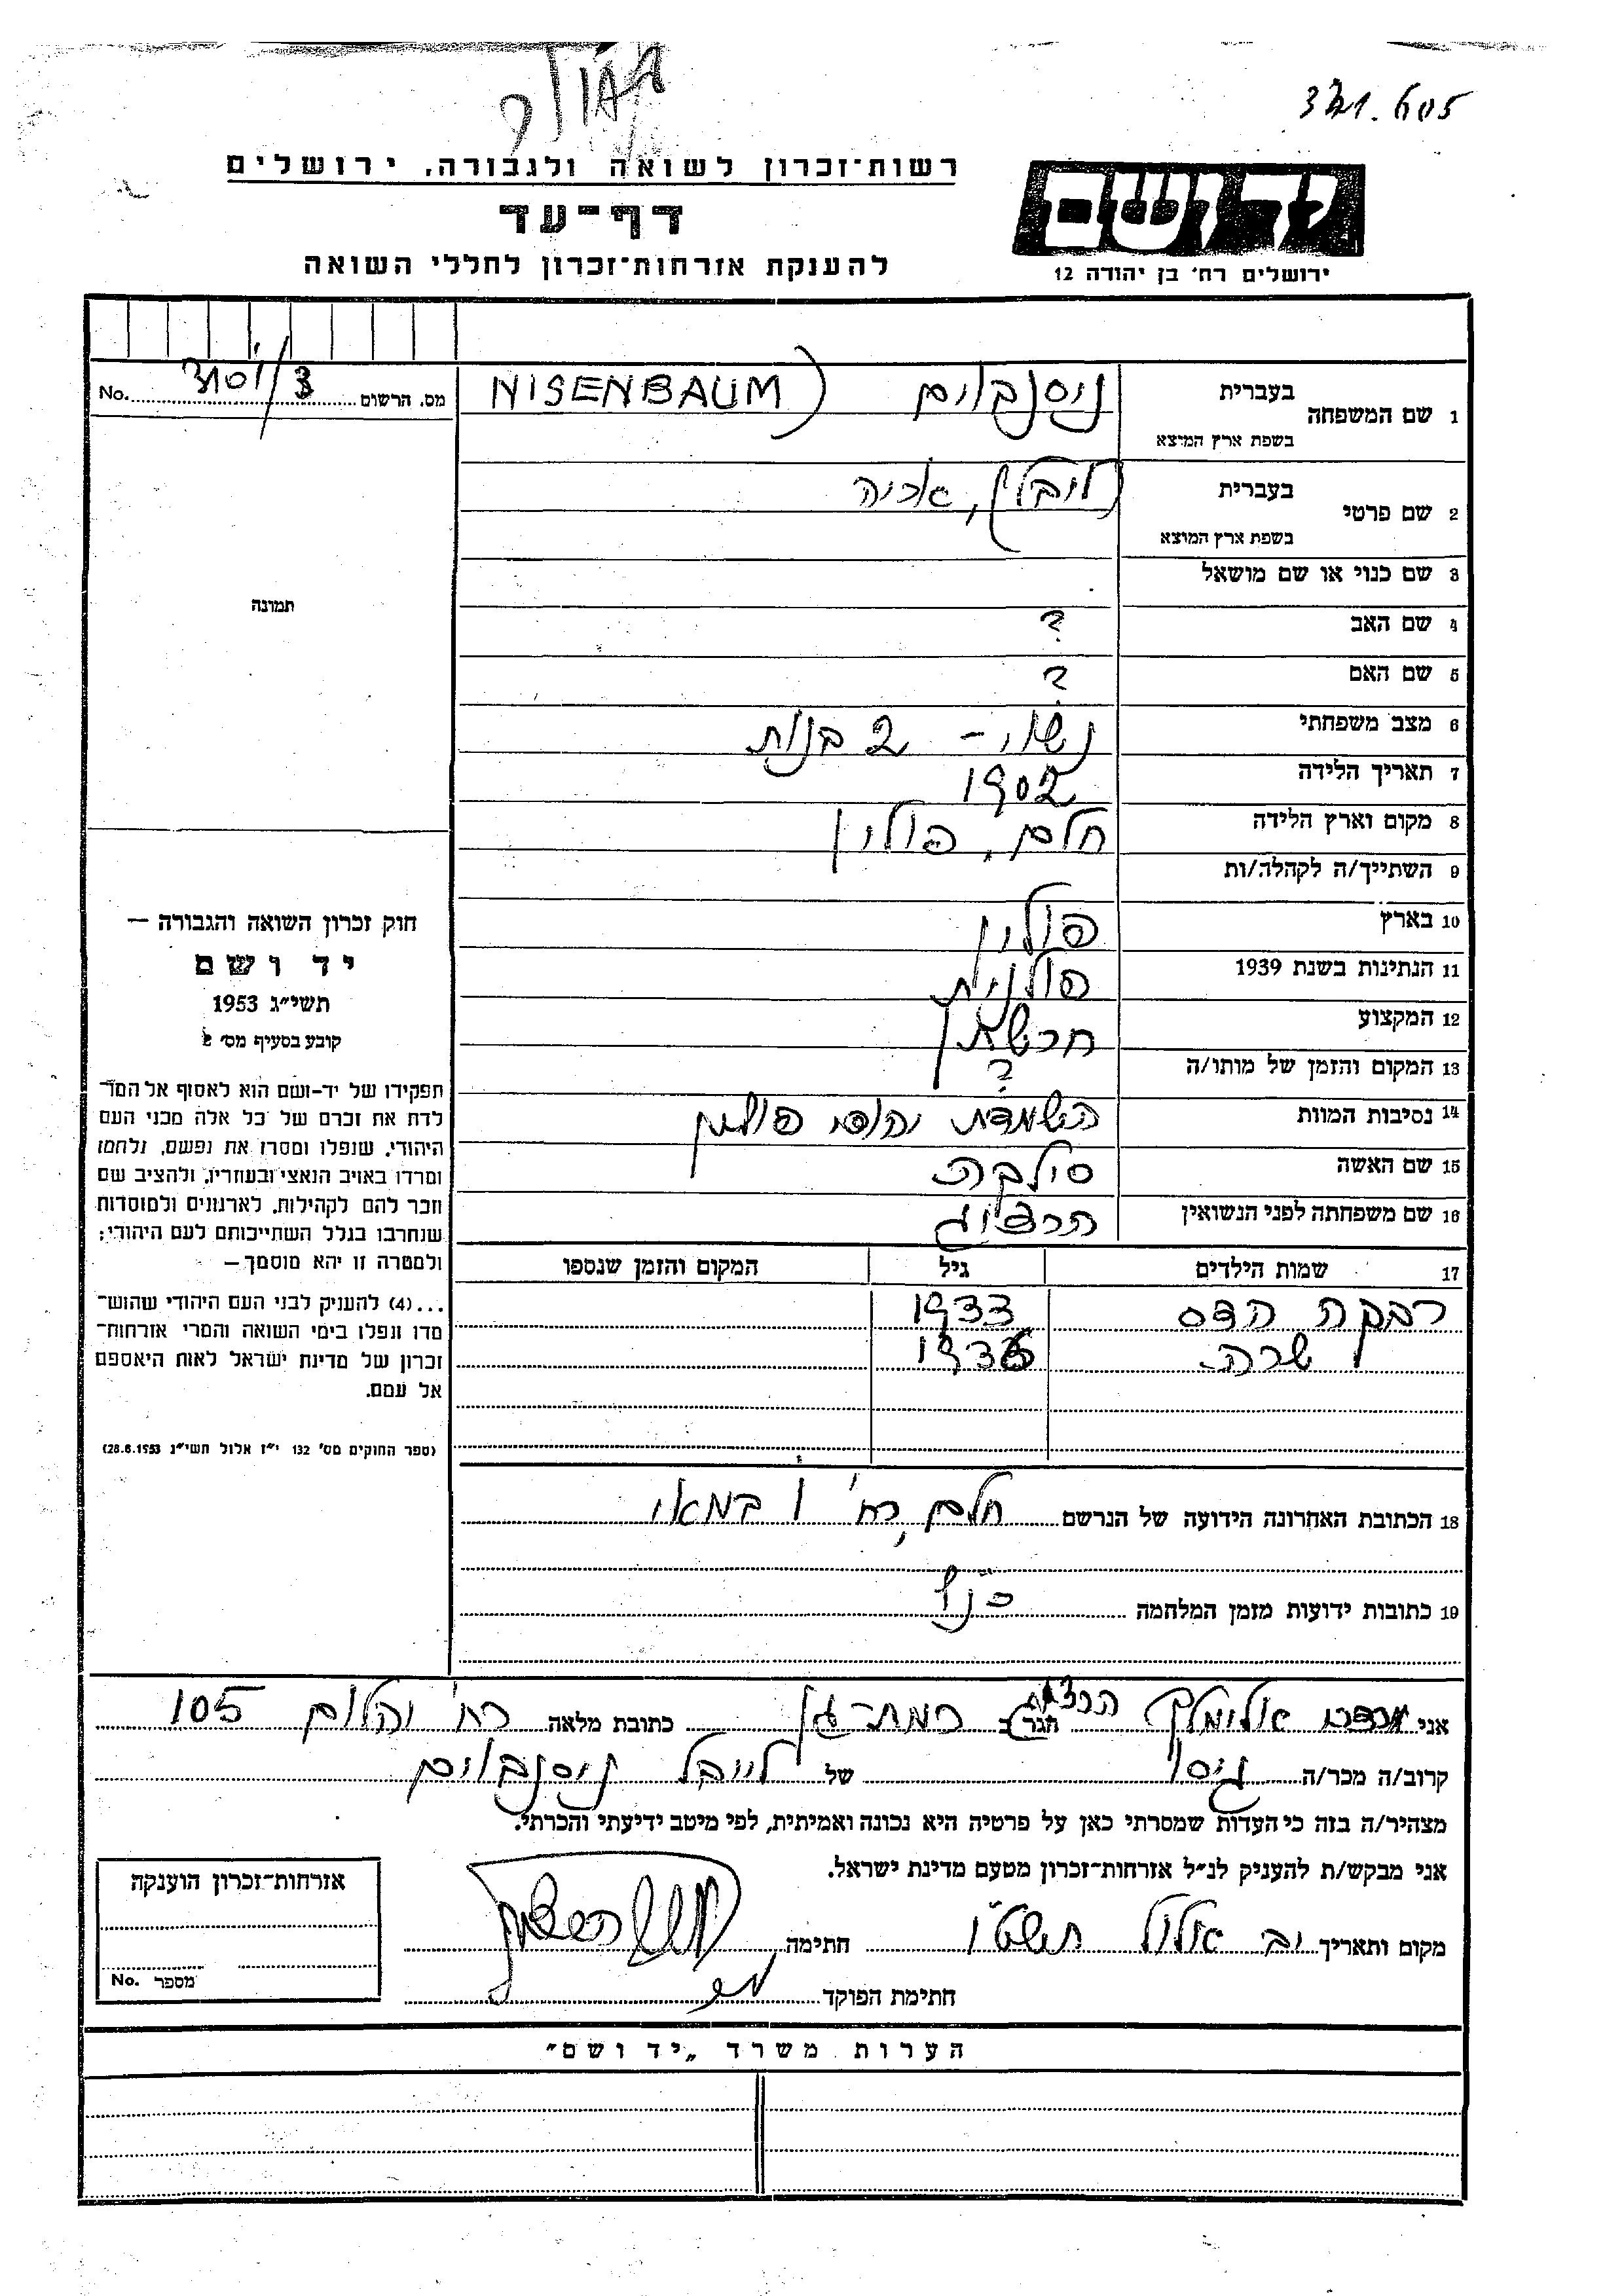 371.605
רשות־זכרון לשואה ולגבורה, ירושלים
יד ושם
דף־עד
להענקת אזרחות־זכרון לחללי השואה
ירושלים רח׳ בן יהודה 12
1 שם המשפחה בעברית ניסנבוים (NISENBAUM
בשפת ארץ המיצא
מס. הרשום No.
2 שם פרטי בעברית לייבל, אריה
בשפת ארץ המוצא
3 שם כנוי או שם מושאל
תמונה
4 שם האב ?
5 שם האם ?
6 מצב משפחתי נשוי - 2 בנות
7 תאריך הלידה 1902
8 מקום וארץ הלידה חלם, פולין
9 השתייך/ה לקהלה/ות
10 בארץ פולין
11 הנתינות בשנת 1939 פולנית
12 המקצוע חרשתן
13 המקום והזמן של מותו/ה ?
14 נסיבות המוות השמדת יהודי פולין
15 שם האשה
16 שם משפחתה לפני הנשואין הרצוג
חוק זכרון השואה והגבורה —
יד ושם
תשי״ג 1953
קובע בסעיף מס׳ 2
תפקידו של יד-ושם הוא לאסוף אל המו־
לדת את זכרם של כל אלה מבני העם
היהודי, שנפלו ומסרו את נפשם, נלחמו
ומרדו באויב הנאצי ובעוזריו, ולהציב שם
וזכר להם לקהילות, לארגונים ולמוסדות
שנחרבו בגלל השתייכותם לעם היהודי;
ולמטרה זו יהא מוסמך —
...(4) להעניק לבני העם היהודי שהוש־
מדו ונפלו בימי השואה והמרי אזרחות־
זכרון של מדינת ישראל לאות היאספם
אל עמם.
(ספר החוקים מס׳ 132 י״ז אלול תשי״ג 28.8.1953)
17 שמות הילדים גיל המקום והזמן שנספו
רבקה הדס 1933
שרה
18 הכתובת האחרונה הידועה של הנרשם חלם, רח׳ 1 במאי
19 כתובות ידועות מזמן המלחמה כנ״ל
אני אלימלך הרצוג הגר ב רמת-גן כתובת מלאה רח׳ יהלום 105
קרוב/ה מכר/ה גיסו של לייבל ניסנבוים
מצהיר/ה בזה כי העדות שמסרתי כאן על פרטיה היא נכונה ואמיתית, לפי מיטב ידיעתי והכרתי.
אני מבקש/ת להעניק לנ״ל אזרחות־זכרון מטעם מדינת ישראל.
מקום ותאריך יב אלול תשט״ו חתימה
חתימת הפוקד
אזרחות־זכרון הוענקה
מספר No.
הערות משרד „יד ושם״